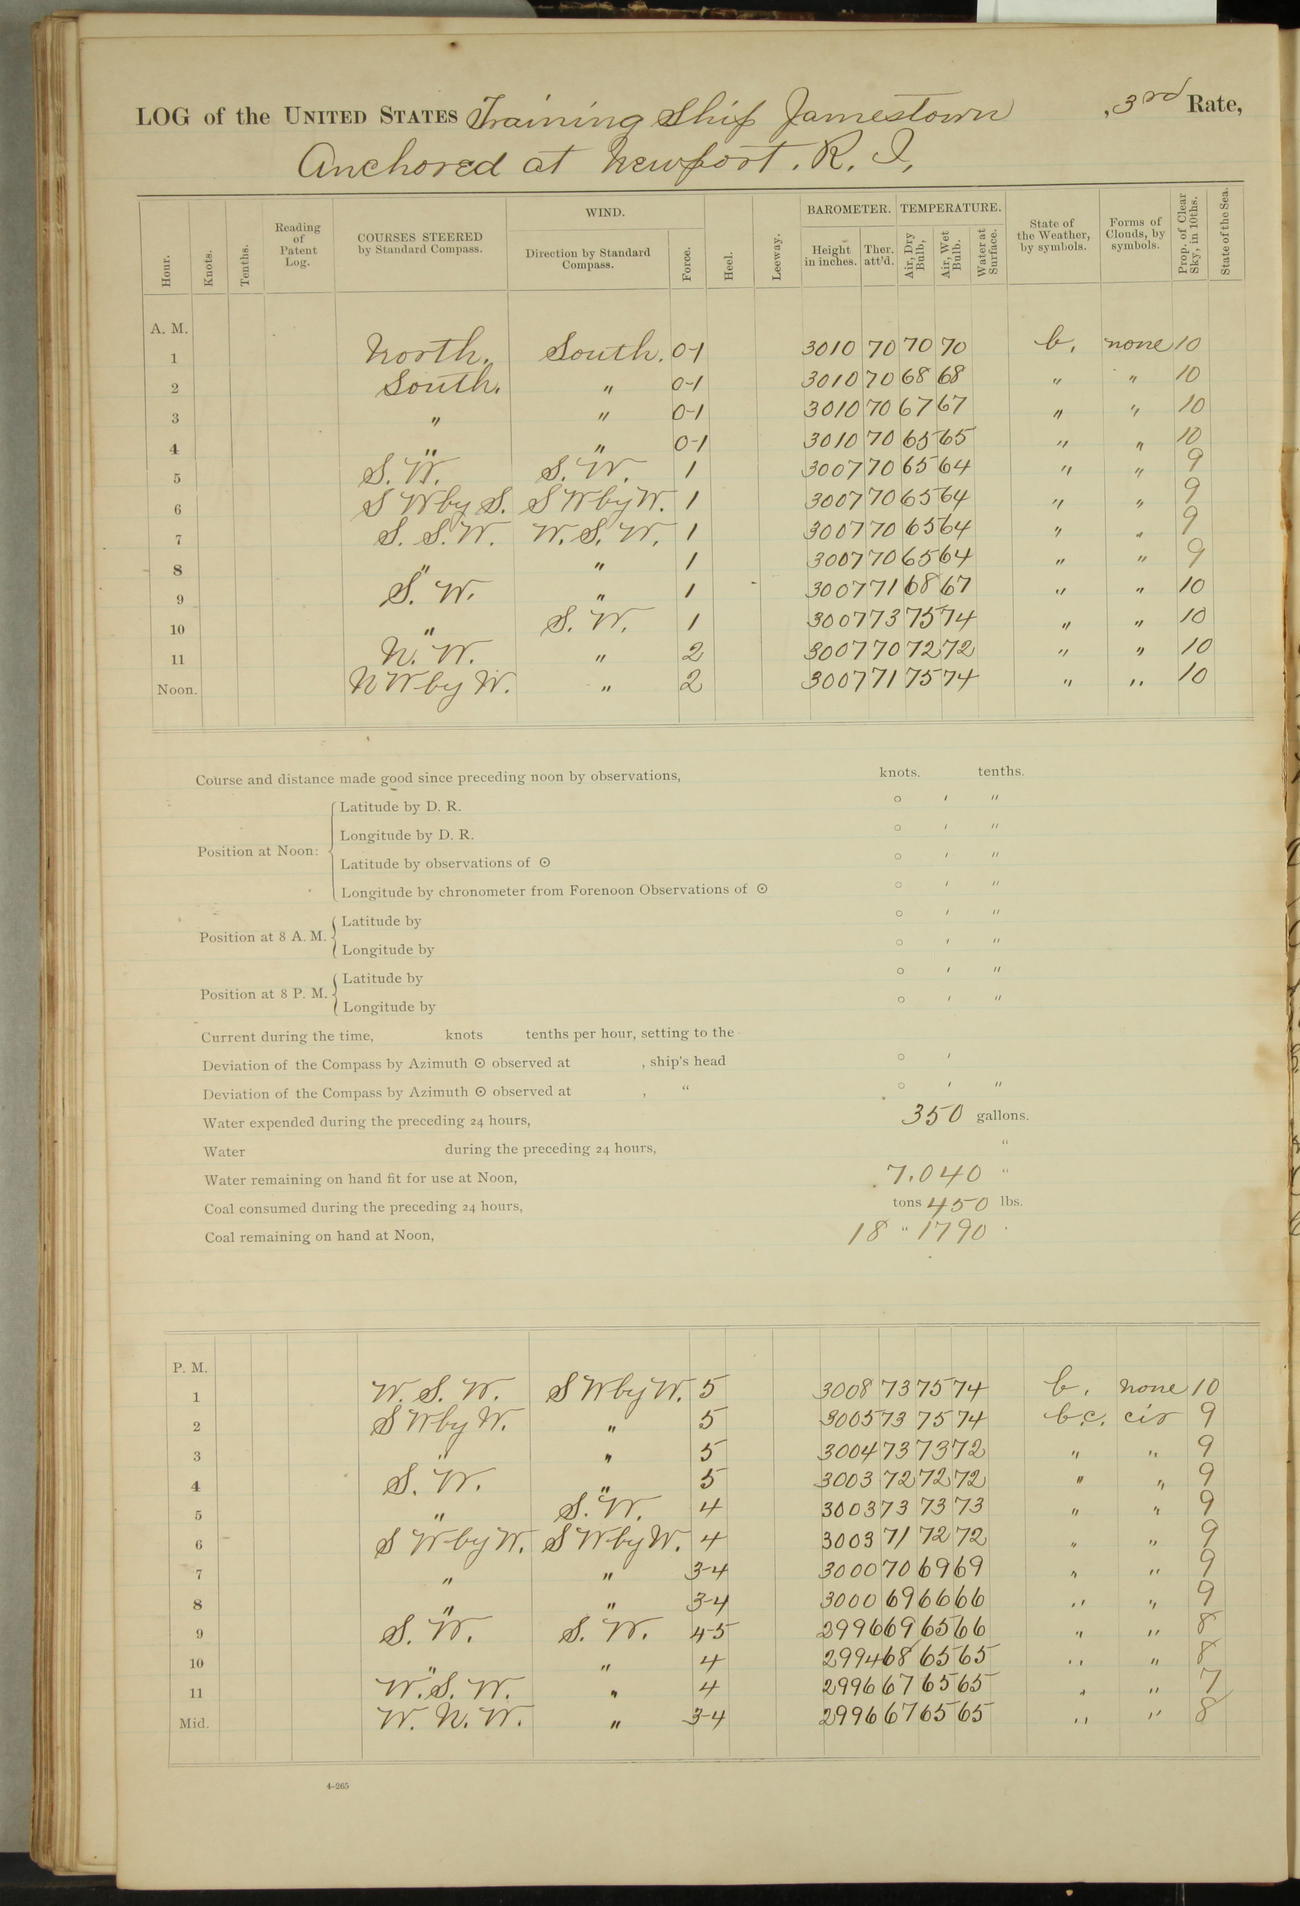 LOG of the UNITED STATES Training Ship Jamestown , 3rd Rate,
Anchored at Newport. R. I,
Hour. Knots. Tenths. Reading of Patent Log. COURSES STEERED by Standard Compass. WIND. Direction by Standard Compass. Force. Heel. Leeway. BAROMETER. Height in inches. Ther. att'd. TEMPERATURE. Air, Dry Bulb, Air, Wet Bulb. Water at Surface. State of the Weather, by symbols. Forms of Clouds, by symbols. Prop. of Clear Sky, in 10ths. State of the Sea.
A. M.
1 North. South. 0-1 3010 70 70 70 b. none 10
2 South. " 0-1 3010 70 68 68 " " 10
3 " " 0-1 3010 70 67 67 " " 10
4 " " 0-1 3010 70 65 65 " " 10
5 S. W. S. W. 1 3007 70 65 64 " " 9
6 S W by S. S W by W. 1 3007 70 65 64 " " 9
7 S. S. W. W. S. W. 1 3007 70 65 64 " " 9
8 " " 1 3007 70 65 64 " " 9
9 S. W. " 1 3007 71 68 67 " " 10
10 " S. W. 1 3007 73 75 74 " " 10
11 N. W. " 2 3007 70 72 72 " " 10
Noon. N W by W. " 2 3007 71 75 74 " " 10
Course and distance made good since preceding noon by observations, knots. tenths.
Position at Noon: Latitude by D. R. ° ′ ″
Longitude by D. R. ° ′ ″
Latitude by observations of ☉ ° ′ ″
Longitude by chronometer from Forenoon Observations of ☉ ° ′ ″
Position at 8 A. M. Latitude by ° ′ ″
Longitude by ° ′ ″
Position at 8 P. M. Latitude by ° ′ ″
Longitude by ° ′ ″
Current during the time, knots tenths per hour, setting to the
Deviation of the Compass by Azimuth ☉ observed at , ship's head ° ′
Deviation of the Compass by Azimuth ☉ observed at , " ° ′ ″
Water expended during the preceding 24 hours, 350 gallons.
Water during the preceding 24 hours, "
Water remaining on hand fit for use at Noon, 7.040 "
Coal consumed during the preceding 24 hours, tons 450 lbs.
Coal remaining on hand at Noon, 18 " 1790
P. M.
1 W. S. W. S W by W. 5 3008 73 75 74 b. none 10
2 S W by W. " 5 3005 73 75 74 b.c. cir 9
3 " " 5 3004 73 73 72 " " 9
4 S. W. " 5 3003 72 72 72 " " 9
5 " S. W. 4 3003 73 73 73 " " 9
6 S W by W. S W by W. 4 3003 71 72 72 " " 9
7 " " 3-4 3000 70 69 69 " " 9
8 " " 3-4 3000 69 66 66 " " 9
9 S. W. S. W. 4-5 2996 69 65 66 " " 8
10 " " 4 2994 68 65 65 " " 8
11 W. S. W. " 4 2996 67 65 65 " " 7
Mid. W. N. W. " 3-4 2996 67 65 65 " " 8
4-265